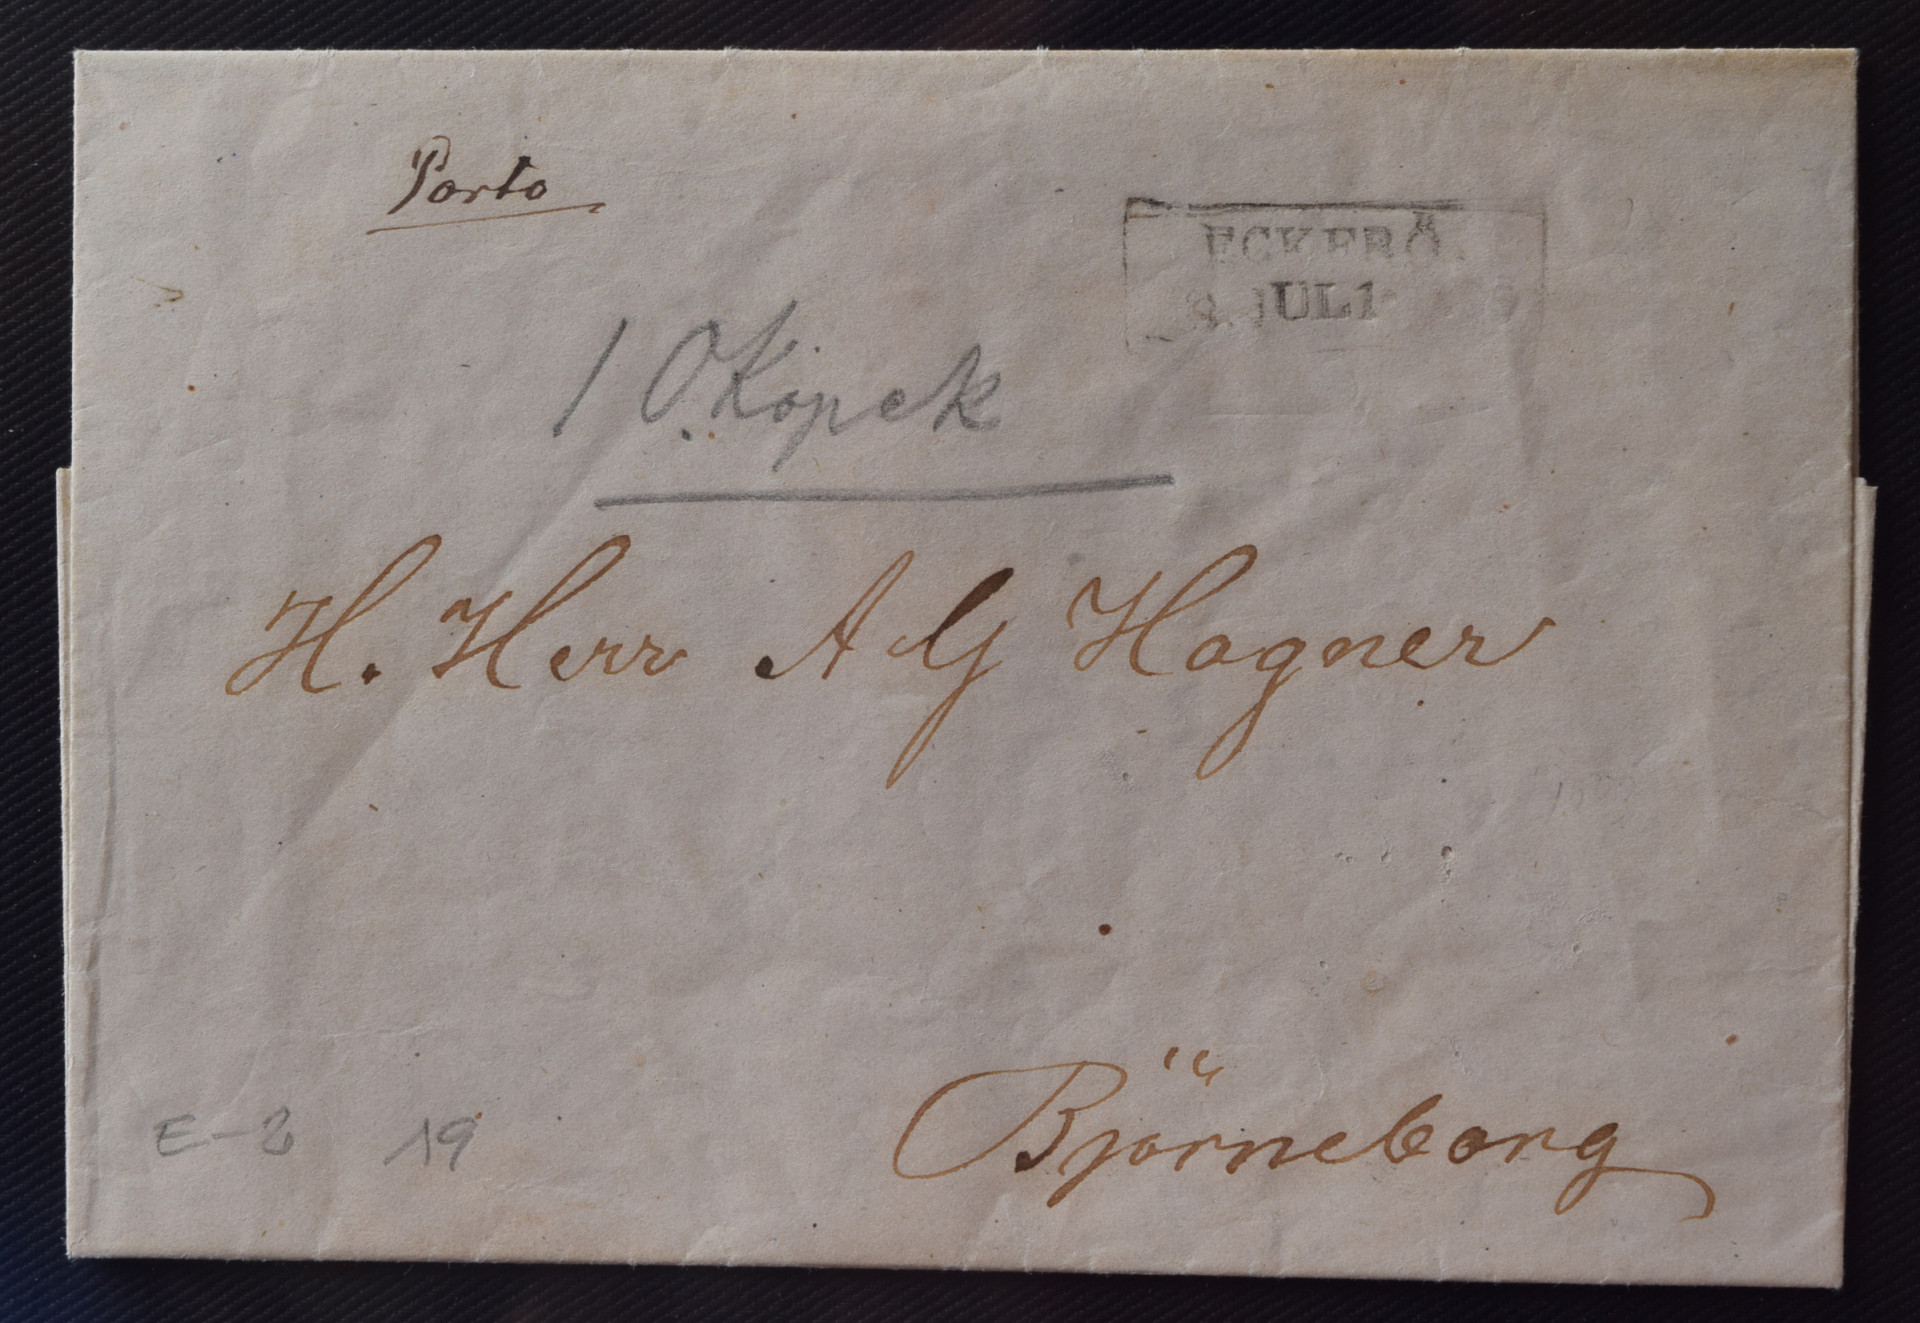 Porto
ECKERÖ.
JULI
10 Kopek
H. Herr A G Hagner
Björneborg
E-2 19